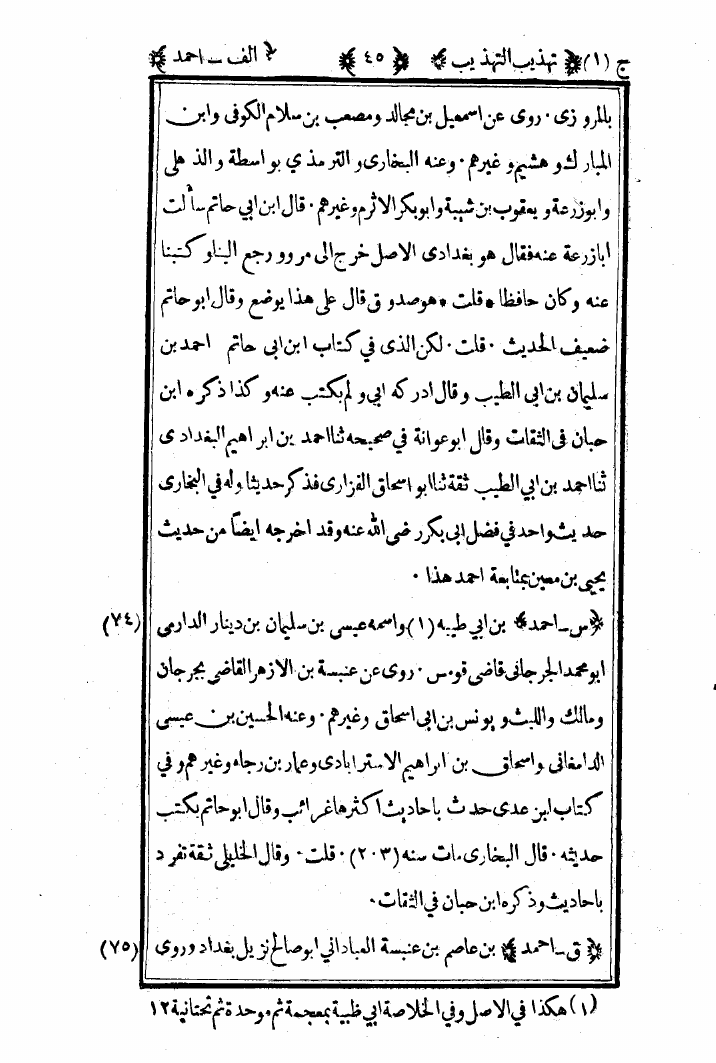 ج (١) ﴿ تهذيب التهذيب ﴾ ﴿ ٤٥ ﴾ ﴿ الف ـ احمد ﴾
بالمروزى ٠ روى عن اسمعيل بن مجالد ومصعب بن سلام الكوفى وابن
المبارك و هشيم و غيرهم ٠ وعنه البخارى و الترمذي بواسطة والذهلى
وابوزرعة و يعقوب بن شيبة وابوبكر الاثرم وغيرهم ٠ قال ابن ابي حاتم سألت
ابازرعة عنه فقال هو بغدادى الاصل خرج الى مرو و رجع الينا و كتبنا
عنه وكان حافظا * قلت * هو صدوق قال على هذا يوضع وقال ابو حاتم
ضعيف الحديث ٠ قلت ٠ لكن الذى في كتاب ابن ابى حاتم احمد بن
سليمان بن ابى الطيب وقال ادركه ابى و لم يكتب عنه و كذا ذكره ابن
حبان فى الثقات وقال ابو عوانة في صحيحه ثنا احمد بن ابراهيم البغدادى
ثنا احمد بن ابي الطيب ثقة ثنا ابو اسحاق الفزارى فذكر حديثا وله في البخارى
حديث واحد في فضل ابى بكر رضى الله عنه وقد اخرجه ايضاً من حديث
يحيى بن معين بمتابعة احمد هذا ٠
﴿ س ـ احمد ﴾ بن ابي طيبه (١) واسمه عيسى بن سليمان بن دينار الدارمى (٧٤)
ابو محمد الجرجانى قاضى قومس ٠ روى عن عنبسة بن الازهر القاضي بجرجان
ومالك والليث و يونس بن ابى اسحاق وغيرهم ٠ وعنه الحسين بن عيسى
الدامغانى واسحاق بن ابراهيم الاسترابادى وعمار بن رجاء وغيرهم و في
كتاب ابن عدى حدث باحاديث اكثرها غرائب وقال ابو حاتم يكتب
حديثه ٠ قال البخارى مات سنه (٢٠٣) ٠ قلت ٠ وقال الخليلى ثقة تفرد
باحاديث وذكره ابن حبان في الثقات ٠
﴿ ق ـ احمد ﴾ بن عاصم بن عنبسة العباداني ابوصالح نزيل بغداد وروى (٧٥)
(١) هكذا في الاصل وفي الخلاصة ابي ظبية بمعجمة ثم موحدة ثم تحتانية ١٢